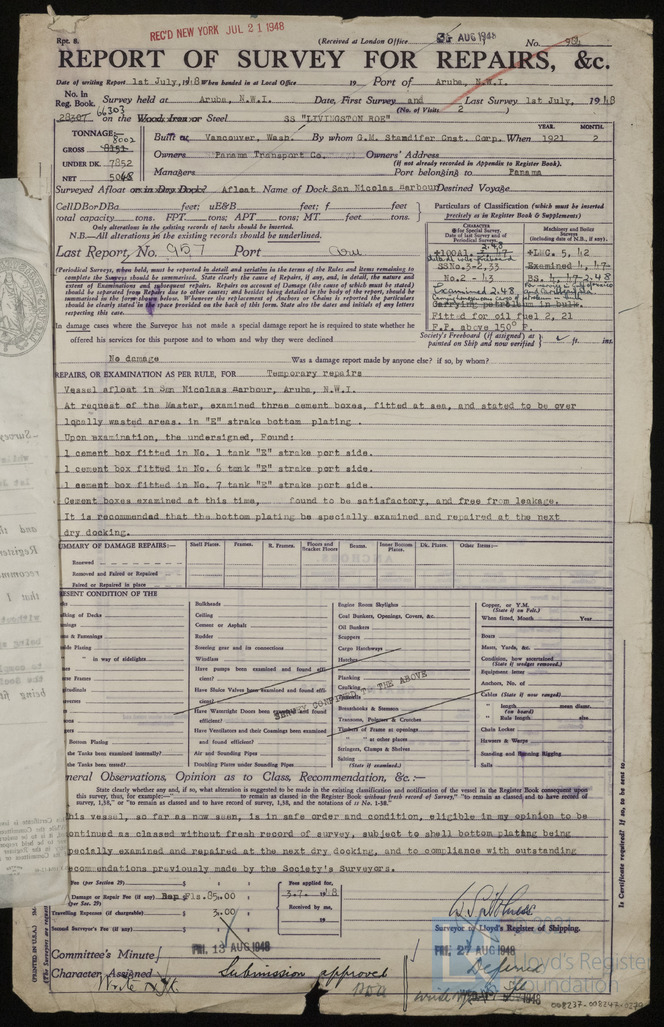 Rpt. 8.
REC'D NEW YORK JUL 21 1948
(Received at London Office AUG 1948 No.
REPORT OF SURVEY FOR REPAIRS, &c.
Date of writing Report 1st July, 1948 When handed in at Local Office 19 Port of Aruba, N.W.I.
No. in Reg. Book. Survey held at Aruba, N.W.I. Date, First Survey and Last Survey 1st July, 1948
(No. of Visits 2 )
66303
28307 on the Wood, Iron or Steel SS "LIVINGSTON ROE"
TONNAGE:—
8002
GROSS 8151
UNDER DK. 7852
NET 5048
Built at Vancouver, Wash. By whom G.M. Standifer Cnst. Corp. When 1921 2
YEAR. MONTH.
Owners Panama Transport Co. Owners' Address
(if not already recorded in Appendix to Register Book).
Managers Port belonging to Panama
Surveyed Afloat or in Dry Dock? Afloat. Name of Dock San Nicolas Harbour Destined Voyage
Cell D B or D B a feet; u E & B feet; f feet
total capacity tons. FPT tons; APT tons; MT feet tons.
Only alterations in the existing records of tanks should be inserted.
N.B.—All alterations in the existing records should be underlined.
Particulars of Classification (which must be inserted precisely as in Register Book & Supplements)
Last Report, No. 957 Port Aru
CHARACTER
for Special Survey.
Date of last Survey and of Periodical Surveys.
Machinery and Boiler Surveys
(including date of N.B., if any).
SSNo.3-2,33
No.2 - 43
Examined 2.48
+LMC. 5, 42
Examined 4, 47
BS. 4, 47 2.48
Carrying petroleum in bulk.
Fitted for oil fuel 2, 21
F.P. above 150° F.
(Periodical Surveys, when held, must be reported in detail and seriatim in the terms of the Rules and items remaining to complete the Surveys should be summarised. State clearly the cause of Repairs, if any, and, in detail, the nature and extent of Examinations and subsequent repairs. Repairs on account of Damage (the cause of which must be stated) should be separated from Repairs due to other causes; and besides being detailed in the body of the report, should be summarised in the form shown below. Whenever the replacement of Anchors or Chains is reported the particulars should be clearly stated in the space provided on the back of this form. State also the dates and initials of any letters respecting this case.
Society's Freeboard (if assigned) as painted on Ship and now verified ft. ins.
In damage cases where the Surveyor has not made a special damage report he is required to state whether he
offered his services for this purpose and to whom and why they were declined
No damage Was a damage report made by anyone else? if so, by whom?
REPAIRS, OR EXAMINATION AS PER RULE, FOR Temporary repairs
Vessel afloat in San Nicolaas Harbour, Aruba, N.W.I.
At request of the Master, examined three cement boxes, fitted at sea, and stated to be over
locally wasted areas. in "E" strake bottom plating .
Upon examination, the undersigned, Found:
1 cement box fitted in No. 1 tank "E" strake port side.
1 cement box fitted in No. 6 tank "E" strake port side.
1 cement box fitted in No. 7 tank "E" strake port side.
Cement boxes examined at this time, found to be satisfactory, and free from leakage.
It is recommended that the bottom plating be specially examined and repaired at the next
dry docking.
SUMMARY OF DAMAGE REPAIRS:— Shell Plates. Frames. R. Frames. Floors and Bracket Floors Beams. Inner Bottom Plates. Dk. Plates. Other Items:—
Renewed
Removed and Faired or Repaired
Faired or Repaired in place
PRESENT CONDITION OF THE
Bulkheads
Ceiling
Cement or Asphalt
Rudder
Steering gear and its connections
Windlass
Have pumps been examined and found efficient?
Have Sluice Valves been examined and found efficient?
Have Watertight Doors been examined and found efficient?
Have Ventilators and their Coamings been examined and found efficient?
Air and Sounding Pipes
Doubling Plates under Sounding Pipes
" in way of sidelights
Bottom Plating
the Tanks been examined internally?
the Tanks been tested?
Engine Room Skylights
Coal Bunkers, Openings, Covers, &c.
Oil Bunkers
Scuppers
Cargo Hatchways
Hatches
Planking
Caulking
Treenails
Breasthooks & Stemson
Transoms, Pointers & Crutches
Timbers of Frame at openings
" " at other places
Stringers, Clamps & Shelves
Salting
(State if examined.)
Copper, or Y.M.
(State if on Felt.)
When fitted, Month Year
Boats
Masts, Yards, &c.
Condition, how ascertained
(State if wedges removed.)
Equipment letter
Anchors, No. of
Cables (State if now ranged)
" length mean diamr.
(on board)
" Rule length size
Chain Locker
Hawsers & Warps
Standing and Running Rigging
Sails
SURVEY CONFINED TO THE ABOVE
General Observations, Opinion as to Class, Recommendation, &c. :—
State clearly whether any and, if so, what alteration is suggested to be made in the existing classification and notification of the vessel in the Register Book consequent upon this survey, thus, for example:—"to remain as classed in the Register Book without fresh record of Survey," "to remain as classed and to have record of survey, 1,38," or "to remain as classed and to have record of survey, 1,38, and the notations of ss No. 1-38."
This vessel, so far as now seen, is in safe order and condition, eligible in my opinion to be
continued as classed without fresh record of survey, subject to shell bottom plating being
specially examined and repaired at the next dry docking, and to compliance with outstanding
recommendations previously made by the Society's Surveyors.
Fee (per Section 29) $ : :
Damage or Repair Fee (if any) Rep Fls. 85.00
(Per Sec. 29)
Travelling Expenses (if chargeable) $ 3.00
Second Surveyor's Fee (if any) $ : :
Fees applied for, 3.7. 1948
Received by me, 19
Surveyor to Lloyd's Register of Shipping.
Committee's Minute FRI. 13 AUG 1948
FRI. 27 AUG 1948
Character Assigned Submission approved
Deferred
Write N.Yk.
Is Certificate required? If so, to be sent to
(PRINTED IN U.S.A.)
© 2021
Lloyd's Register Foundation
008237-008247-0279